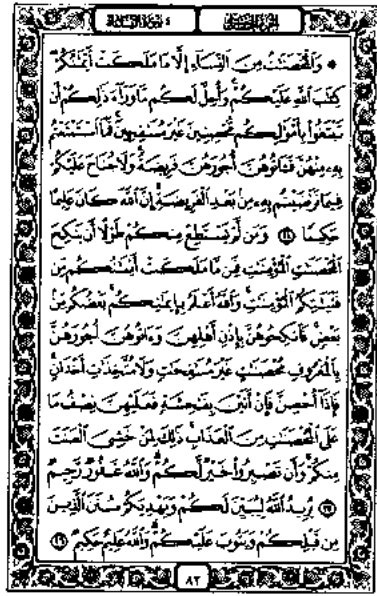 الجزء الخامس ٤ سورة النساء
۞ وَٱلْمُحْصَنَٰتُ مِنَ ٱلنِّسَآءِ إِلَّا مَا مَلَكَتْ أَيْمَٰنُكُمْ
كِتَٰبَ ٱللَّهِ عَلَيْكُمْ وَأُحِلَّ لَكُم مَّا وَرَآءَ ذَٰلِكُمْ أَن
تَبْتَغُوا۟ بِأَمْوَٰلِكُم مُّحْصِنِينَ غَيْرَ مُسَٰفِحِينَ فَمَا ٱسْتَمْتَعْتُم
بِهِۦ مِنْهُنَّ فَـَٔاتُوهُنَّ أُجُورَهُنَّ فَرِيضَةً وَلَا جُنَاحَ عَلَيْكُمْ
فِيمَا تَرَٰضَيْتُم بِهِۦ مِنۢ بَعْدِ ٱلْفَرِيضَةِ إِنَّ ٱللَّهَ كَانَ عَلِيمًا
حَكِيمًا ٢٤ وَمَن لَّمْ يَسْتَطِعْ مِنكُمْ طَوْلًا أَن يَنكِحَ
ٱلْمُحْصَنَٰتِ ٱلْمُؤْمِنَٰتِ فَمِن مَّا مَلَكَتْ أَيْمَٰنُكُم مِّن
فَتَيَٰتِكُمُ ٱلْمُؤْمِنَٰتِ وَٱللَّهُ أَعْلَمُ بِإِيمَٰنِكُم بَعْضُكُم مِّنۢ
بَعْضٍ فَٱنكِحُوهُنَّ بِإِذْنِ أَهْلِهِنَّ وَءَاتُوهُنَّ أُجُورَهُنَّ
بِٱلْمَعْرُوفِ مُحْصَنَٰتٍ غَيْرَ مُسَٰفِحَٰتٍ وَلَا مُتَّخِذَٰتِ أَخْدَانٍ
فَإِذَآ أُحْصِنَّ فَإِنْ أَتَيْنَ بِفَٰحِشَةٍ فَعَلَيْهِنَّ نِصْفُ مَا
عَلَى ٱلْمُحْصَنَٰتِ مِنَ ٱلْعَذَابِ ذَٰلِكَ لِمَنْ خَشِىَ ٱلْعَنَتَ
مِنكُمْ وَأَن تَصْبِرُوا۟ خَيْرٌ لَّكُمْ وَٱللَّهُ غَفُورٌ رَّحِيمٌ
٢٥ يُرِيدُ ٱللَّهُ لِيُبَيِّنَ لَكُمْ وَيَهْدِيَكُمْ سُنَنَ ٱلَّذِينَ
مِن قَبْلِكُمْ وَيَتُوبَ عَلَيْكُمْ وَٱللَّهُ عَلِيمٌ حَكِيمٌ ٢٦
٨٢